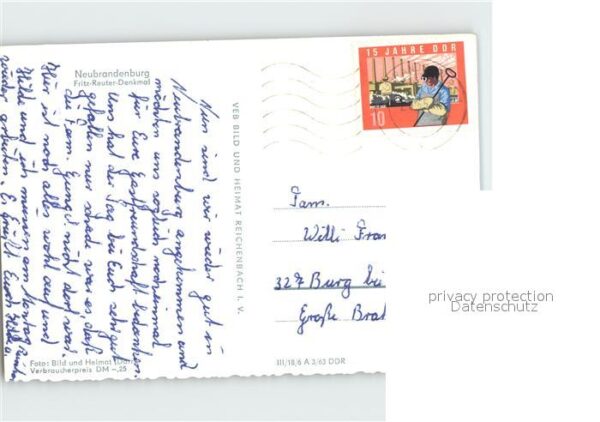 Neubrandenburg
Fritz-Reuter-Denkmal
Nun sind wir wieder gut in
Neubrandenburg angekommen und
möchten uns zugleich nocheinmal
für Eure Gastfreundschaft bedanken.
Uns hat der Tag bei Euch sehr gut
gefallen nur schade war es daß
zu Fam. nicht dort war.
Hier ist noch alles wohl auf und
Hilde und ich müssen am Montag
wieder arbeiten. Es grüßt Euch
Foto: Bild und Heimat
Verbraucherpreis DM -,25
VEB BILD UND HEIMAT REICHENBACH I. V.
15 JAHRE DDR
10
Fam.
Willi Fran
327 Burg bei
Große Bra
III/18/6 A 3/63 DDR
privacy protection
Datenschutz